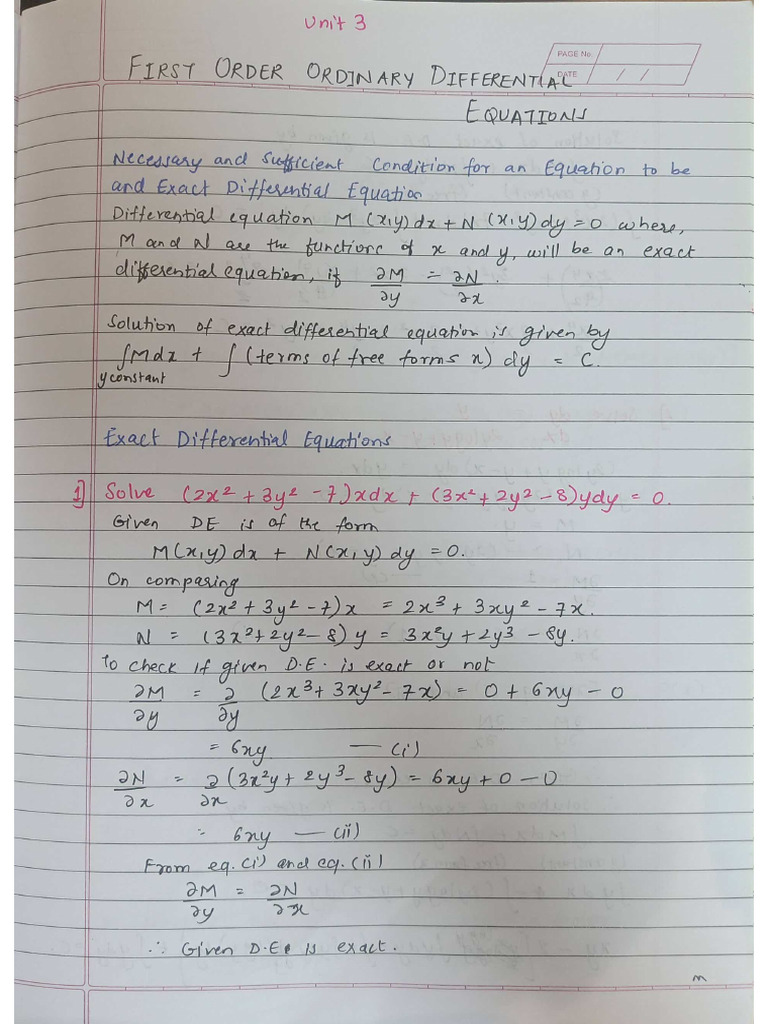 Unit 3
PAGE No.
DATE / /
FIRST ORDER ORDINARY DIFFERENTIAL
EQUATIONS
Necessary and Sufficient Condition for an Equation to be
and Exact Differential Equation
Differential equation M (x,y) dx + N (x,y) dy = 0 where,
M and N are the functions of x and y, will be an exact
differential equation, if ∂M/∂y = ∂N/∂x.
Solution of exact differential equation is given by
∫Mdx + ∫ (terms of free forms x) dy = C.
y constant
Exact Differential Equations
1] Solve (2x² + 3y² - 7)xdx + (3x² + 2y² - 8)ydy = 0.
Given DE is of the form
M(x,y) dx + N(x,y) dy = 0.
On comparing
M = (2x² + 3y² - 7)x = 2x³ + 3xy² - 7x.
N = (3x² + 2y² - 8) y = 3x²y + 2y³ - 8y.
To check if given D.E. is exact or not
∂M/∂y = ∂/∂y (2x³ + 3xy² - 7x) = 0 + 6xy - 0
= 6xy — (i)
∂N/∂x = ∂/∂x (3x²y + 2y³ - 8y) = 6xy + 0 - 0
= 6xy — (ii)
From eq. (i) and eq. (ii)
∂M/∂y = ∂N/∂x
∴ Given D.E. is exact.